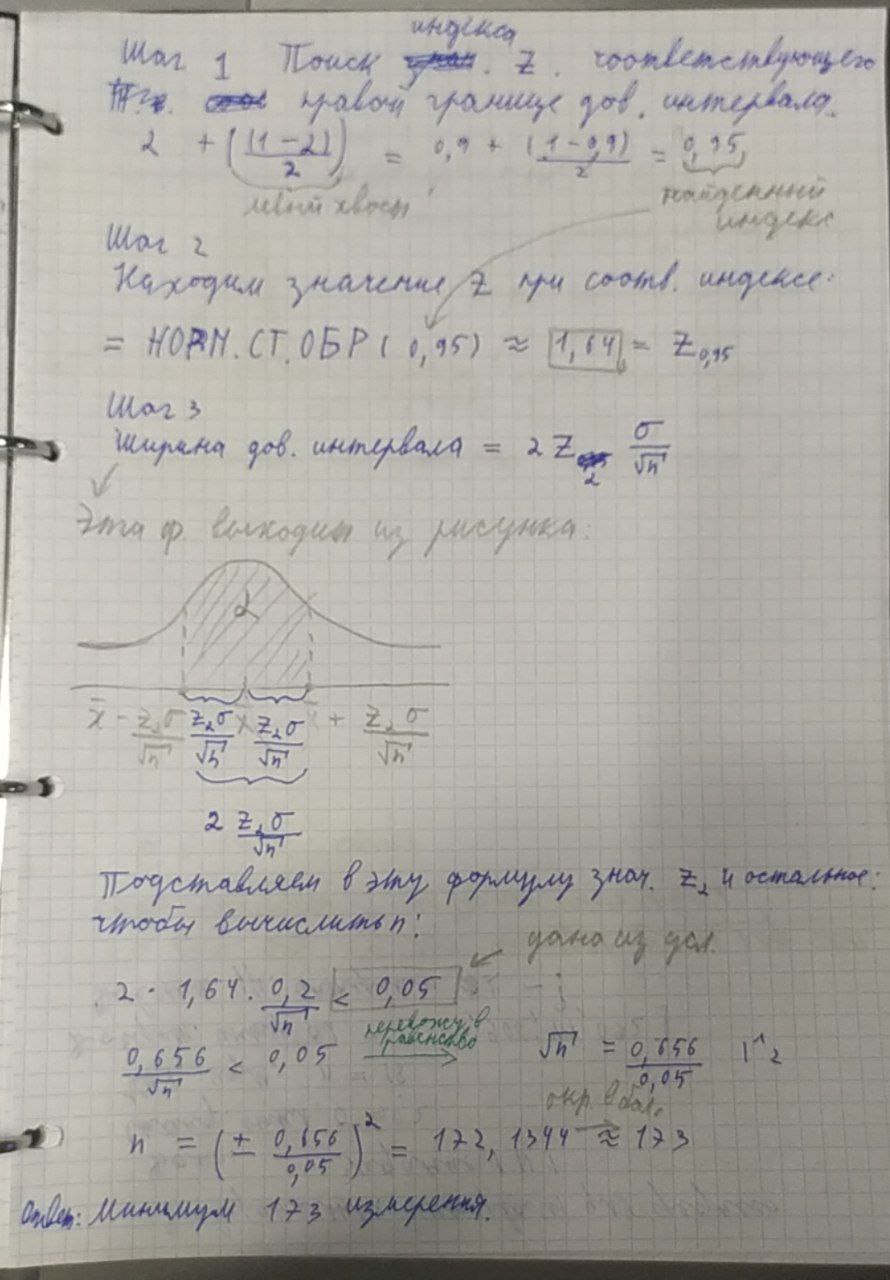 индекса
Шаг 1 Поиск z. соответствующего
правой границе дов. интервала.
2 + ((1-2)/2) = 0,9 + (1-0,9)/2 = 0,95
левый хвост
найденный
индекс
Шаг 2
Находим значение z при соотв. индексе:
= НОРМ.СТ.ОБР(0,95) ≈ 1,64 = Z0,95
Шаг 3
Ширина дов. интервала = 2 Z2 σ/√n
Эта ф. выходит из рисунка:
2
x̄ - z2σ/√n z2σ/√n x̄ z2σ/√n x̄ + z2σ/√n
2 z2σ/√n
Подставляем в эту формулу знач. z2 и остальное:
чтобы вычислить n:
дана из усл.
2 · 1,64 · 0,2/√n < 0,05
перевожу в
равенство
0,656/√n < 0,05 → √n = 0,656/0,05 |^2
окр. в бол.
n = (± 0,656/0,05)^2 = 172,1344 ≈ 173
Ответ: Минимум 173 измерения.